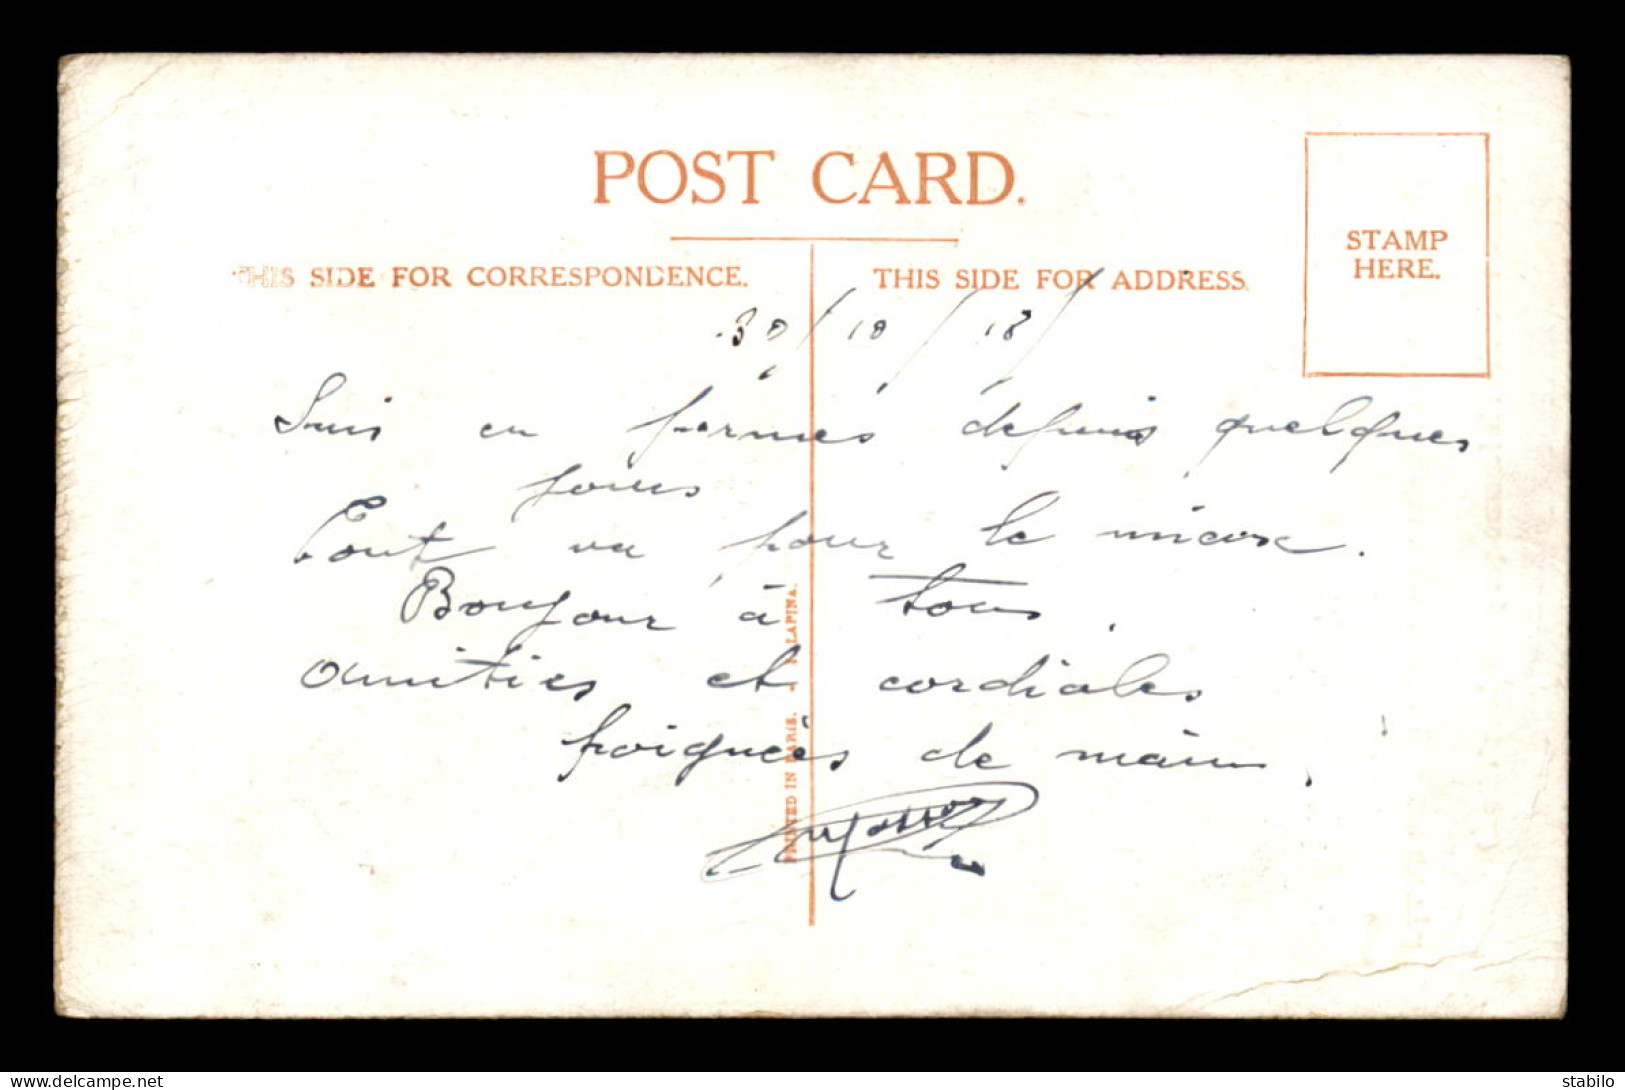 POST CARD.
THIS SIDE FOR CORRESPONDENCE.
THIS SIDE FOR ADDRESS
STAMP
HERE.
30/10/18/
Suis en formes depuis quelques
jours
Tout va pour le mieux.
Bonjour à tous.
Amitiés et cordiales
poignées de mains.
PRINTED IN PARIS. - LAPINA.
delcampe.net
stabilo